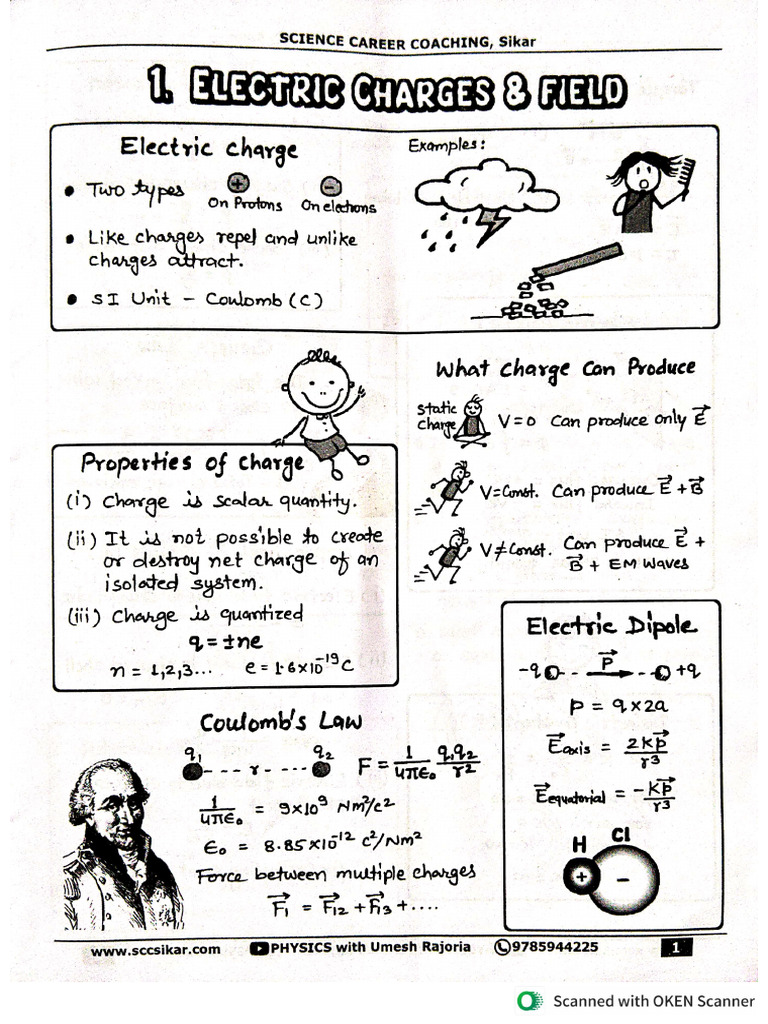 SCIENCE CAREER COACHING, Sikar
1. ELECTRIC CHARGES & FIELD
Electric charge
• Two types + −
On Protons On electrons
• Like charges repel and unlike
charges attract.
• SI Unit – Coulomb (C)
Examples:
What Charge Can Produce
Static
Charge
V=0 Can produce only E⃗
V=Const. Can produce E⃗ + B⃗
V≠Const. Can produce E⃗ +
B⃗ + EM Waves
Properties of charge
(i) Charge is scalar quantity.
(ii) It is not possible to create
or destroy net charge of an
isolated system.
(iii) Charge is quantized
q = ±ne
n = 1,2,3... e = 1.6×10⁻¹⁹C
Electric Dipole
-q P⃗ +q
P = q × 2a
E⃗axis = 2KP⃗/r³
E⃗equatorial = -KP⃗/r³
H Cl
+ −
Coulomb's Law
q₁ ---r--- q₂ F = 1/4πε₀ q₁q₂/r²
1/4πε₀ = 9×10⁹ Nm²/c²
ε₀ = 8.85×10⁻¹² c²/Nm²
Force between multiple charges
F⃗₁ = F⃗₁₂ + F⃗₁₃ + ....
www.sccsikar.com PHYSICS with Umesh Rajoria 9785944225 1
Scanned with OKEN Scanner